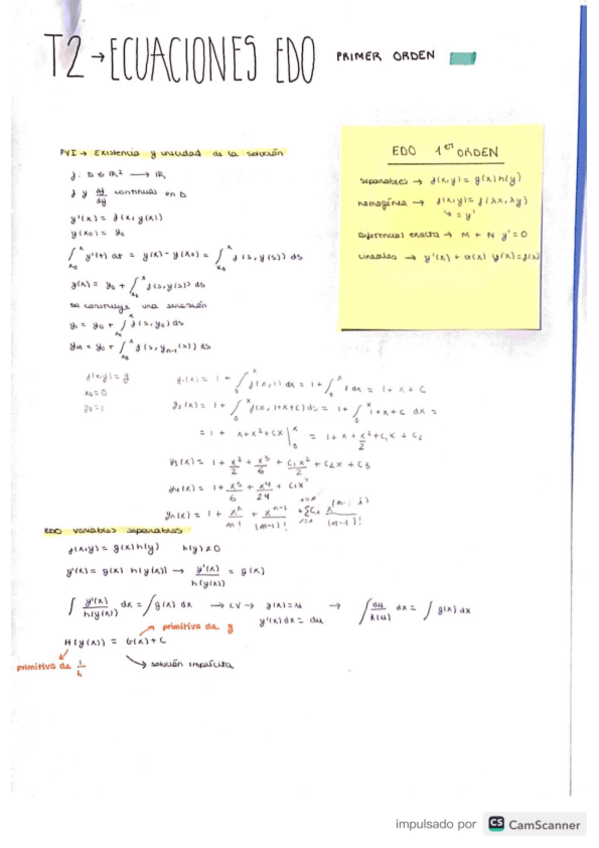 T2 → ECUACIONES EDO PRIMER ORDEN
PVI → Existencia y unicidad de la solución
f: D ⊆ ℝ² → ℝ
f y df/dy continuas en D
y'(x) = f(x, y(x))
y(x₀) = y₀
∫_{x₀}^{x} y'(t) dt = y(x) - y(x₀) = ∫_{x₀}^{x} f(s, y(s)) ds
y(x) = y₀ + ∫_{x₀}^{x} f(s, y(s)) ds
se construye una sucesión
y₁ = y₀ + ∫_{x₀}^{x} f(s, y₀) ds
yₙ = y₀ + ∫_{x₀}^{x} f(s, yₙ₋₁(s)) ds
EDO 1er ORDEN
separables → f(x,y) = g(x) h(y)
homogénea → f(x,y) = f(λx, λy)
↳ = y'
diferencial exacta → M + N y' = 0
lineales → y'(x) + a(x) y(x) = f(x)
f(x,y) = y
x₀ = 0
y₀ = 1
y₁(x) = 1 + ∫_0^x f(x, 1) dx = 1 + ∫_0^x 1 dx = 1 + x + C
y₂(x) = 1 + ∫_0^x f(x, 1+x+C) dx = 1 + ∫_0^x 1+x+C dx =
= 1 + x + x² + Cx |_0^x = 1 + x + x²/2 + C₁x + C₂
y₃(x) = 1 + x²/2 + x³/6 + C₁x²/2 + C₂x + C₃
y₄(x) = 1 + x³/6 + x⁴/24 + C₁x
yₙ(x) = 1 + xⁿ/n! + xⁿ⁻¹/(n-1)! + ΣCᵢ
EDO variables separables
f(x,y) = g(x) h(y) h(y) ≠ 0
y'(x) = g(x) · h(y(x)) → y'(x)/h(y(x)) = g(x)
∫ y'(x)/h(y(x)) dx = ∫ g(x) dx → CV → y(x) = u → ∫ du/h(u) dx = ∫ g(x) dx
y'(x) dx = du
primitiva de g
H(y(x)) = G(x) + C
primitiva de 1/h
solución implícita
impulsado por CS CamScanner